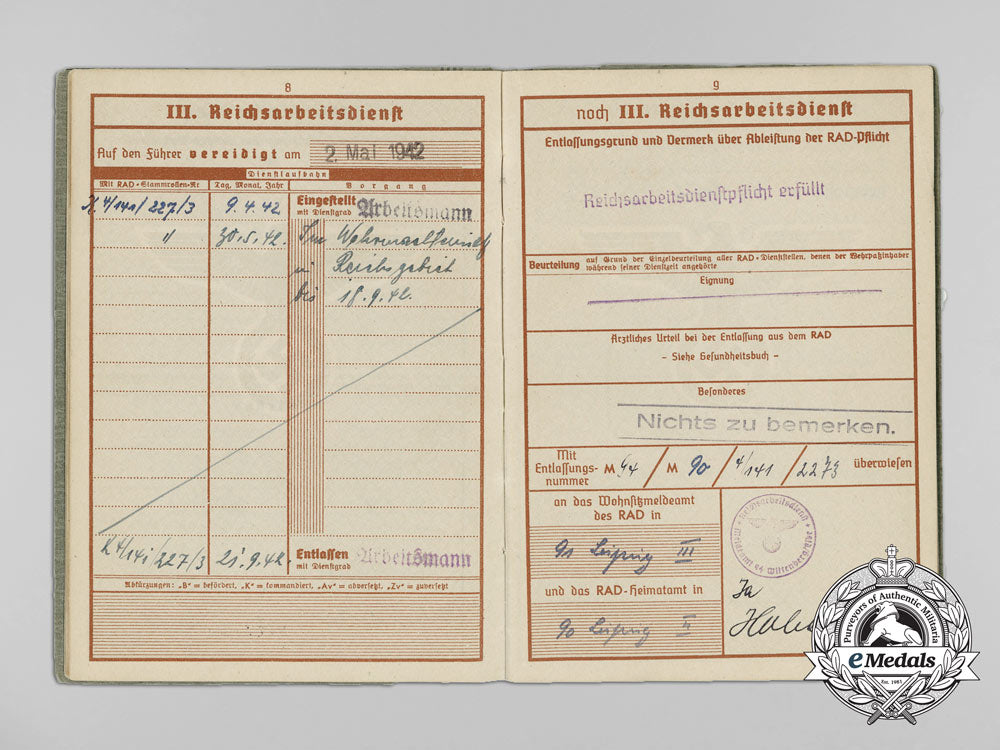 8
III. Reichsarbeitsdienst
Auf den Führer vereidigt am 2. Mai 1942
Dienstlaufbahn
Mit RAD-Stammrollen-Nr Tag, Monat, Jahr Vorgang
4/141/227/3 9.4.42 Eingestellt mit Dienstgrad Arbeitsmann
" 30.5.42. Im
in Reichsgebiet
bis 18.9.42.
4/141/227/3 21.9.42. Entlassen mit Dienstgrad Arbeitsmann
Abkürzungen: „B" = befördert, „K" = kommandiert, „Av" = abversetzt, „Zv" = zuversetzt
9
noch III. Reichsarbeitsdienst
Entlassungsgrund und Vermerk über Ableistung der RAD-Pflicht
Reichsarbeitsdienstpflicht erfüllt
Beurteilung auf Grund der Einzelbeurteilung aller RAD-Dienststellen, denen der Wehrpaßinhaber
während seiner Dienstzeit angehörte
Eignung
Ärztliches Urteil bei der Entlassung aus dem RAD
- Siehe Gesundheitsbuch -
Besonderes
Nichts zu bemerken.
Mit Entlassungs-nummer M 94 / M 90 / 4/141 / 2273 überwiesen
an das Wohnsitzmeldeamt
des RAD in
91 Leipzig III
und das RAD-Heimatamt in
90 Leipzig
Reichsarbeitsdienst
Meldeamt 94 Wittenberg/Elbe
Purveyors of Authentic Militaria
eMedals
Est. 1981